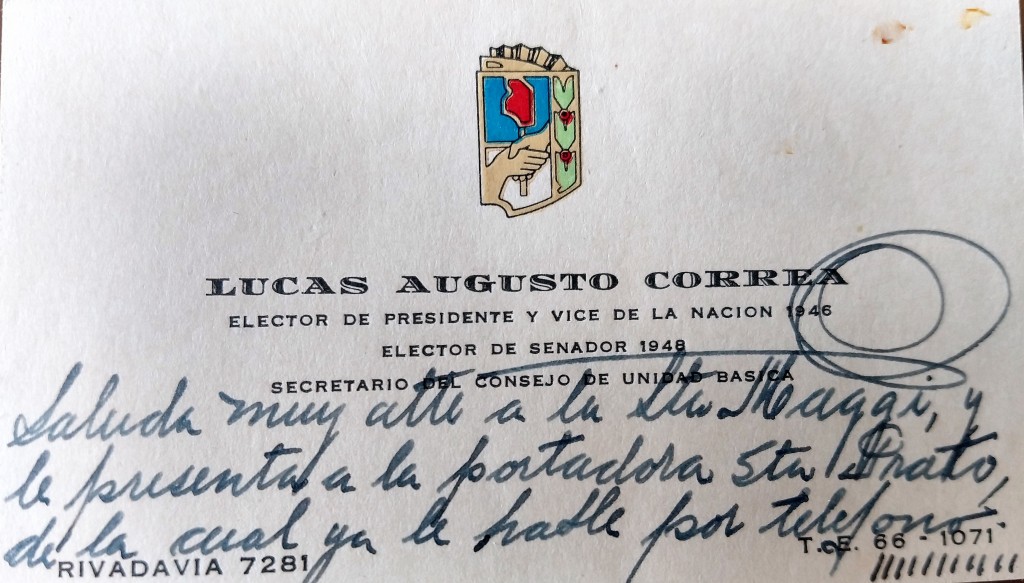 LUCAS AUGUSTO CORREA
ELECTOR DE PRESIDENTE Y VICE DE LA NACION 1946
ELECTOR DE SENADOR 1948
SECRETARIO DEL CONSEJO DE UNIDAD BASICA
Saluda muy atte a la Sta Maggi, y
le presenta a la portadora Sta Prato,
de la cual ya le hablé por telefono.
RIVADAVIA 7281
T. E. 66 - 1071